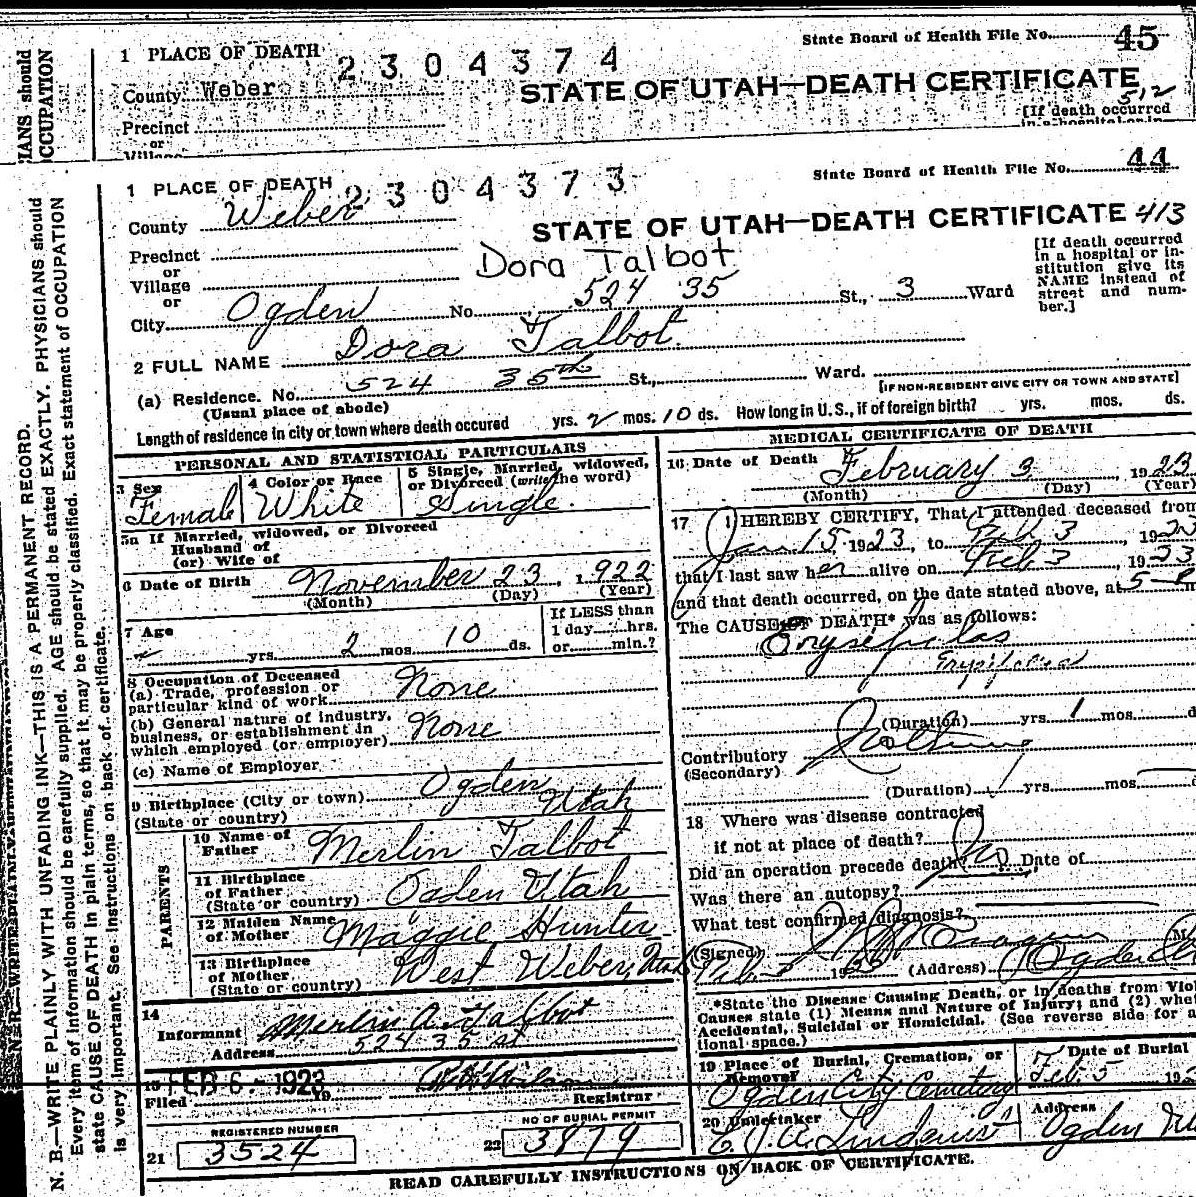 State Board of Health File No. 45
1 PLACE OF DEATH
2304374
County Weber
STATE OF UTAH—DEATH CERTIFICATE
512
Precinct
or
Village
[If death occurred
in a hospital or in-
IANS should
OCCUPATION
State Board of Health File No. 44
1 PLACE OF DEATH
2304373
County Weber
STATE OF UTAH—DEATH CERTIFICATE 413
Precinct
or
Dora Talbot
Village
or
City Ogden No. 524 35 St., 3 Ward
[If death occurred
in a hospital or in-
stitution give its
NAME instead of
street and num-
ber.]
2 FULL NAME Dora Talbot.
(a) Residence. No. 524 35th St., Ward.
(Usual place of abode)
[IF NON-RESIDENT GIVE CITY OR TOWN AND STATE]
Length of residence in city or town where death occured yrs. 2 mos. 10 ds. How long in U. S., if of foreign birth? yrs. mos. ds.
PERSONAL AND STATISTICAL PARTICULARS
3 Sex
Female
4 Color or Race
White
5 Single, Married, widowed,
or Divorced (write the word)
Single.
5a If Married, widowed, or Divorced
Husband of
(or) Wife of
6 Date of Birth November 23, 1922
(Month) (Day) (Year)
7 Age
yrs. 2 mos. 10 ds.
If LESS than
1 day hrs.
or min.?
8 Occupation of Deceased
(a) Trade, profession or
particular kind of work None
(b) General nature of industry,
business, or establishment in
which employed (or employer) None
(c) Name of Employer
9 Birthplace (City or town) Ogden
(State or country) Utah
PARENTS
10 Name of
Father Merlin Talbot
11 Birthplace
of Father
(State or country) Ogden Utah
12 Maiden Name
of Mother Maggie Hunter
13 Birthplace
of Mother
(State or country) West Weber, Utah
14
Informant Merlin A. Talbot
Address 524 35 st
15 FEB 6 - 1923
Filed 19
Registrar
REGISTERED NUMBER
21 3524
NO OF BURIAL PERMIT
22 3879
MEDICAL CERTIFICATE OF DEATH
16 Date of Death February 3, 1923
(Month) (Day) (Year)
17 I HEREBY CERTIFY, That I attended deceased from
Jan. 15 1923, to Feb 3, 1923
that I last saw her alive on Feb 3, 1923
and that death occurred, on the date stated above, at 5-P m
The CAUSE OF DEATH* was as follows:
Erysipelas
Erysipelas
(Duration) yrs. 1 mos. d
Contributory Nothing
(Secondary)
(Duration) yrs. mos.
18 Where was disease contracted
if not at place of death?
Did an operation precede death? No Date of
Was there an autopsy?
What test confirmed diagnosis?
(Signed)
(Address) Ogden
*State the Disease Causing Death, or in deaths from Viol
Causes state (1) Means and Nature of Injury; and (2) whe
Accidental, Suicidal or Homicidal. (See reverse side for a
tional space.)
19 Place of Burial, Cremation, or
Removal
Ogden City Cemetery
Date of Burial
Feb. 5 192
20 Undertaker
Lindquist
Address
Ogden
READ CAREFULLY INSTRUCTIONS ON BACK OF CERTIFICATE.
N. B.—WRITE PLAINLY WITH UNFADING INK—THIS IS A PERMANENT RECORD.
Every item of information should be carefully supplied. AGE should be stated EXACTLY. PHYSICIANS should
state CAUSE OF DEATH in plain terms, so that it may be properly classified. Exact statement of OCCUPATION
is very important. See instructions on back of certificate.